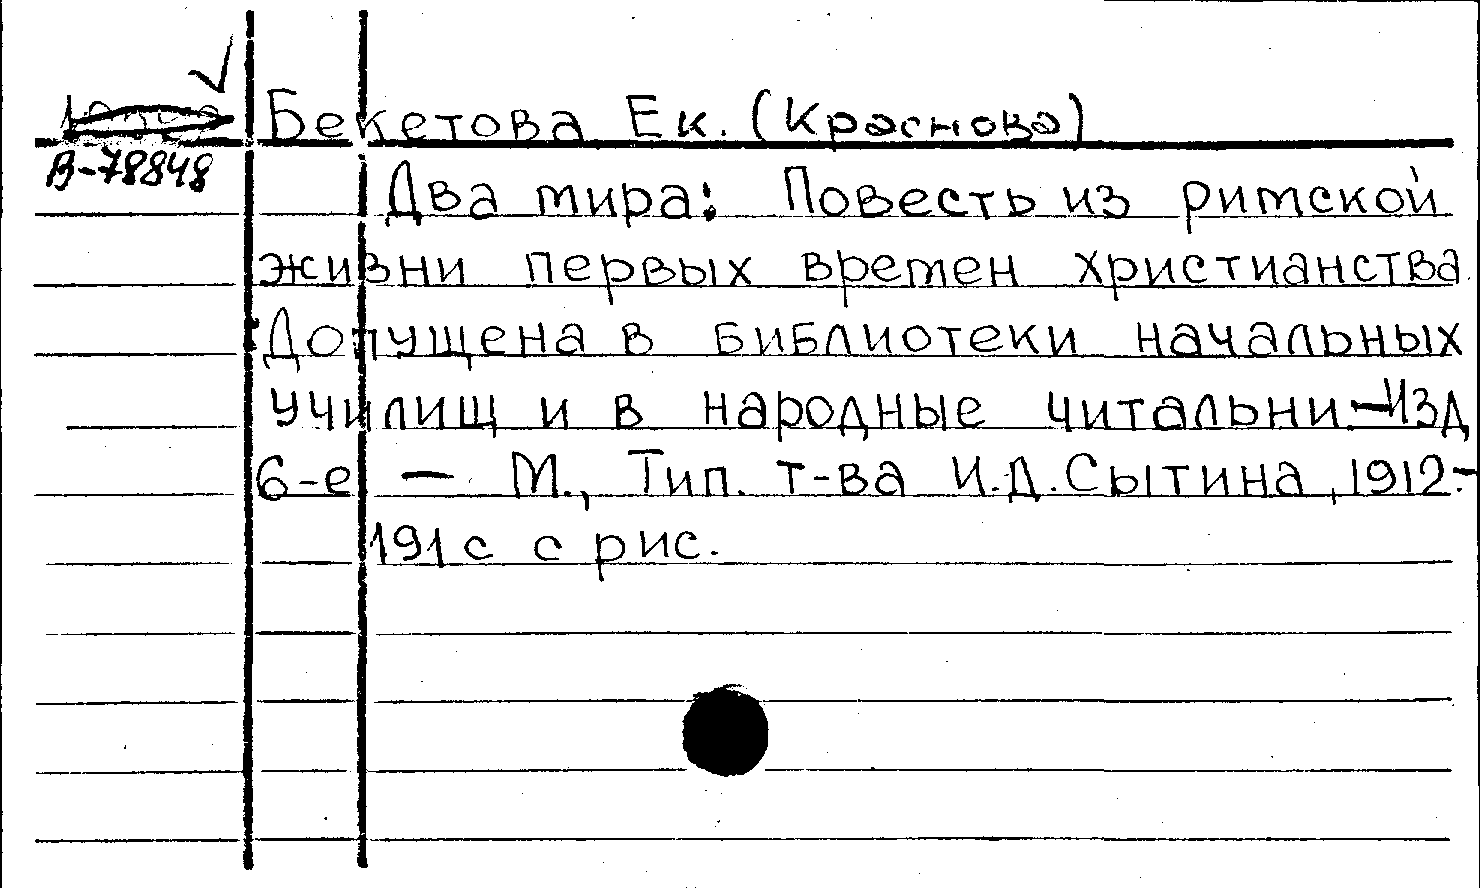 Бекетова Ек. (Краснова)
В-78848
Два мира: Повесть из римской
жизни первых времен христианства.
Допущена в библиотеки начальных
училищ и в народные читальни.-Изд
6-е - М., Тип. т-ва И.Д.Сытина, 1912.-
191с с рис.